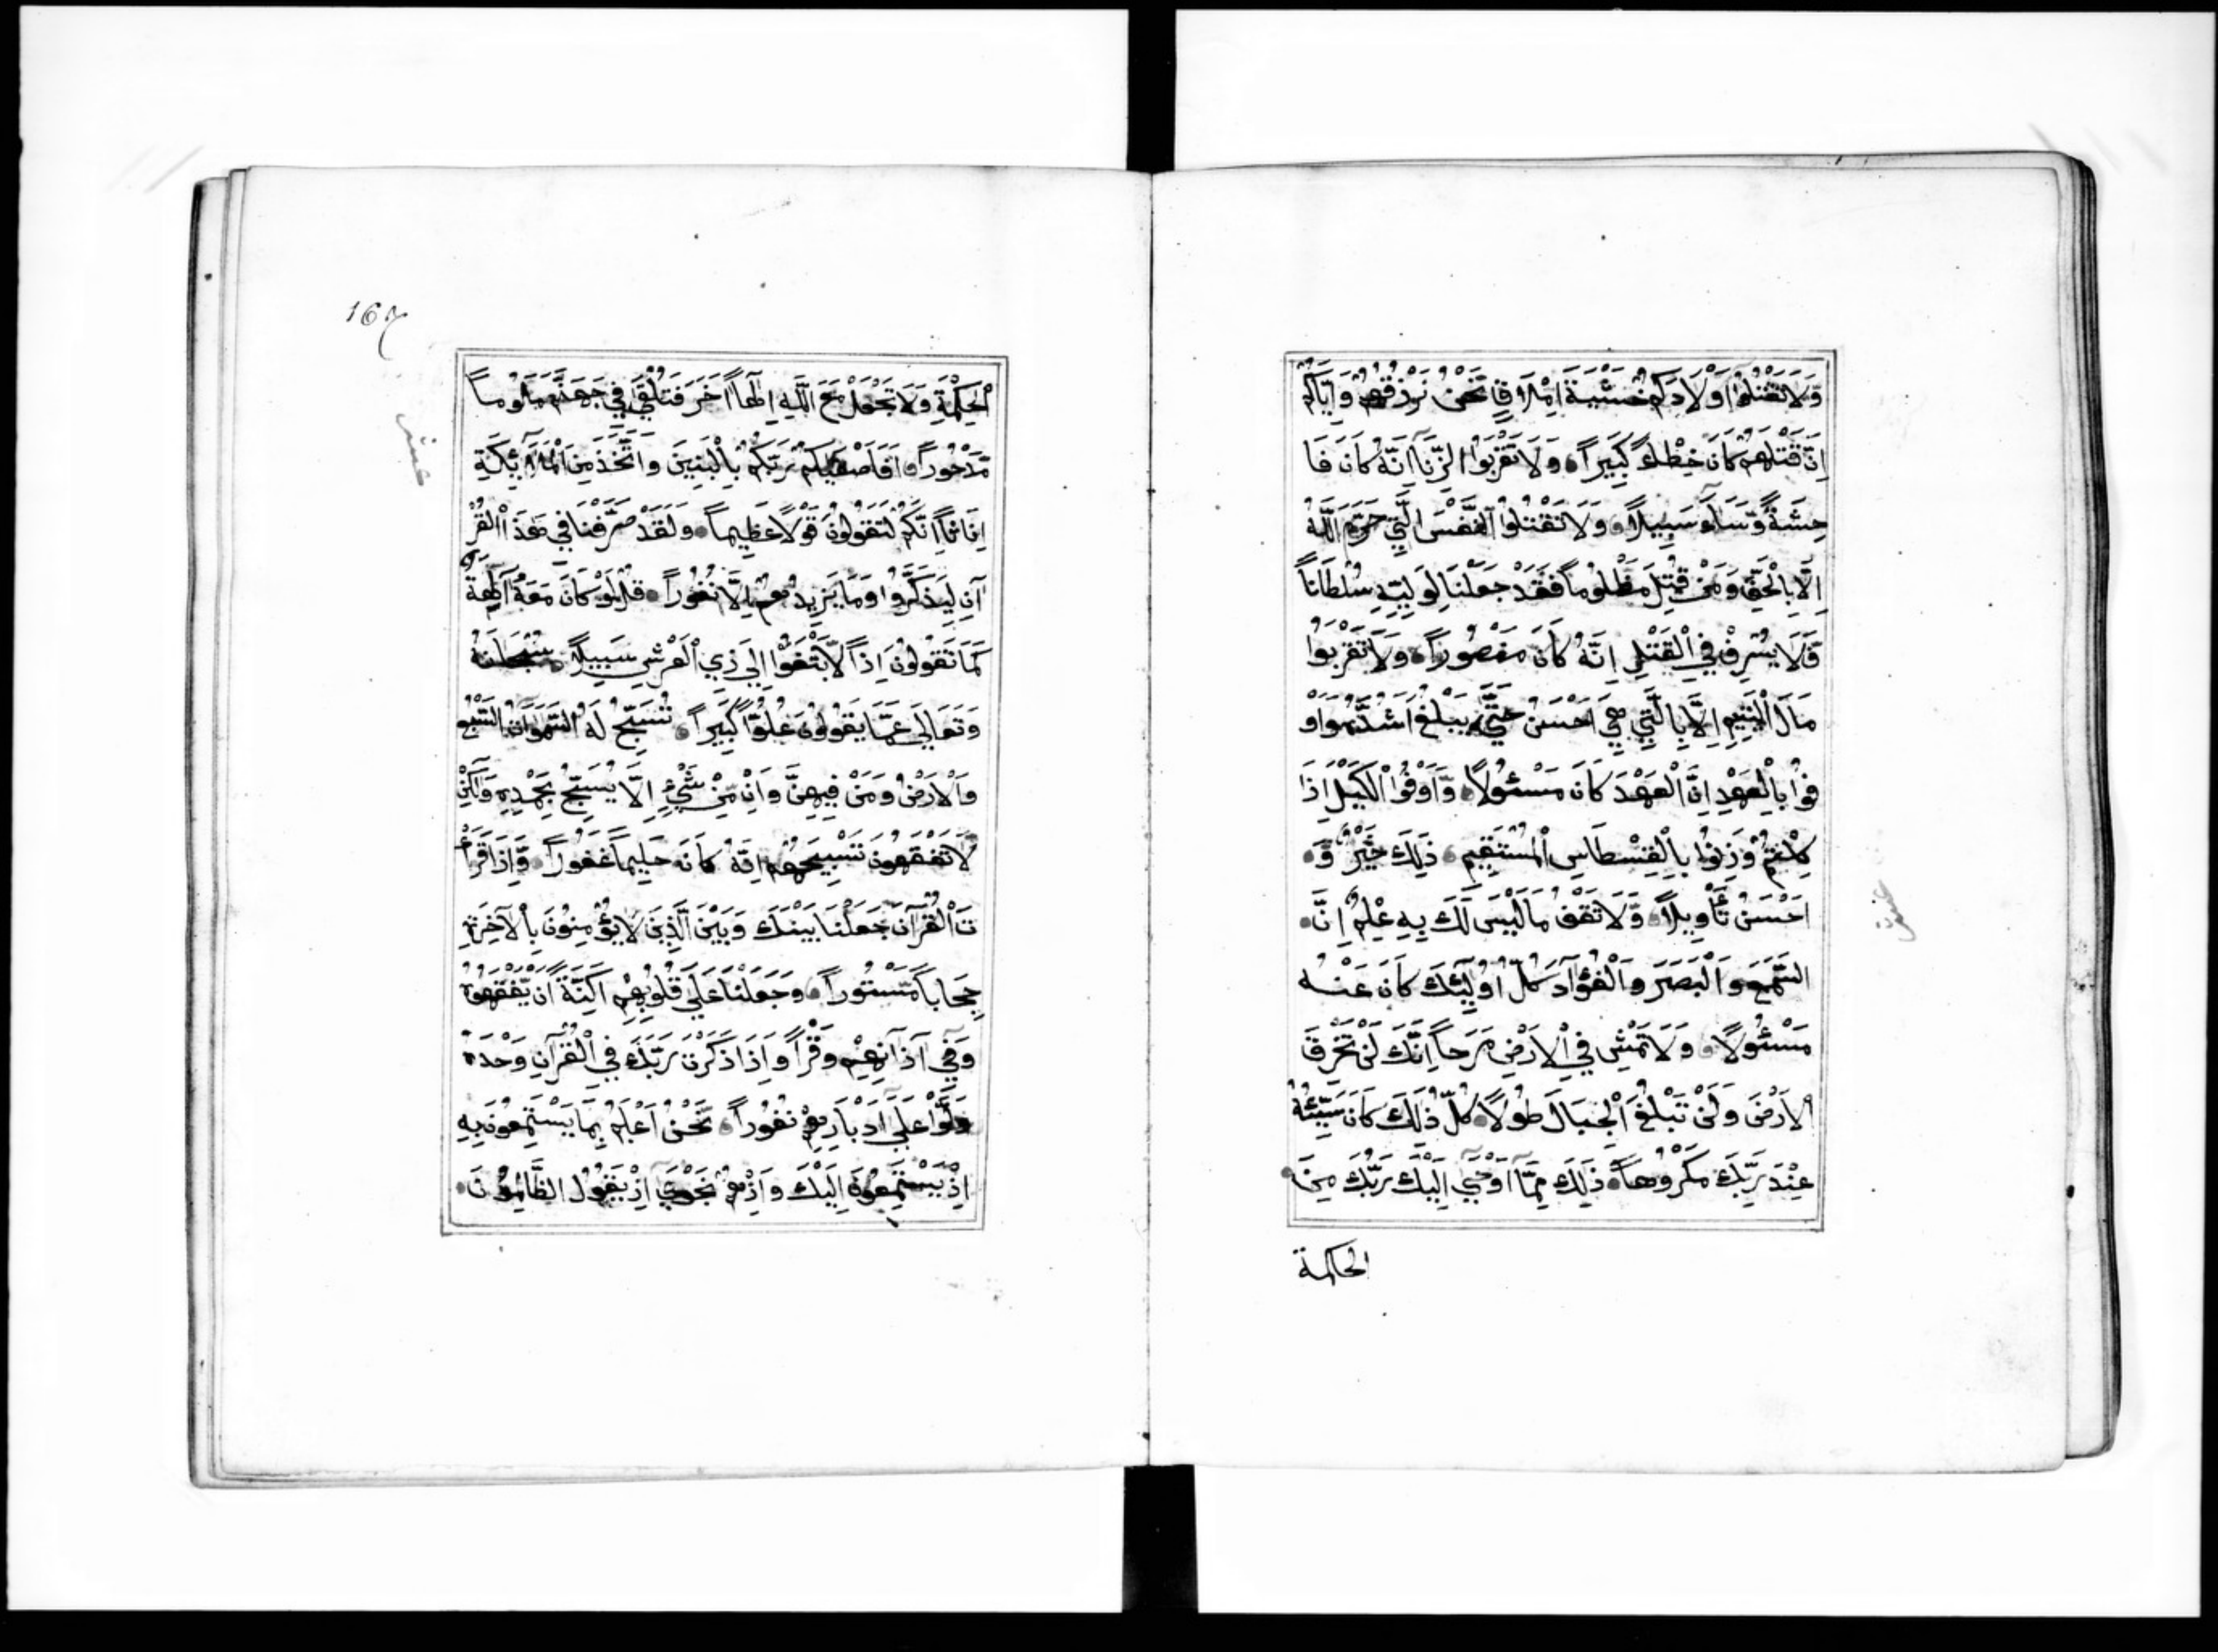 وَلَا تَقْتُلُوا أَوْلَادَكُمْ خَشْيَةَ إِمْلَاقٍ نَحْنُ نَرْزُقُهُمْ وَإِيَّاكُمْ
إِنَّ قَتْلَهُمْ كَانَ خِطْئًا كَبِيرًا وَلَا تَقْرَبُوا الزِّنَا إِنَّهُ كَانَ فَا
حِشَةً وَسَاءَ سَبِيلًا وَلَا تَقْتُلُوا النَّفْسَ الَّتِي حَرَّمَ اللَّهُ
إِلَّا بِالْحَقِّ وَمَنْ قُتِلَ مَظْلُومًا فَقَدْ جَعَلْنَا لِوَلِيِّهِ سُلْطَانًا
فَلَا يُسْرِفْ فِي الْقَتْلِ إِنَّهُ كَانَ مَنْصُورًا وَلَا تَقْرَبُوا
مَالَ الْيَتِيمِ إِلَّا بِالَّتِي هِيَ أَحْسَنُ حَتَّى يَبْلُغَ أَشُدَّهُ وَأَوْ
فُوا بِالْعَهْدِ إِنَّ الْعَهْدَ كَانَ مَسْئُولًا وَأَوْفُوا الْكَيْلَ إِذَا
كِلْتُمْ وَزِنُوا بِالْقِسْطَاسِ الْمُسْتَقِيمِ ذَلِكَ خَيْرٌ وَ
أَحْسَنُ تَأْوِيلًا وَلَا تَقْفُ مَا لَيْسَ لَكَ بِهِ عِلْمٌ إِنَّ
السَّمْعَ وَالْبَصَرَ وَالْفُؤَادَ كُلُّ أُولَئِكَ كَانَ عَنْهُ
مَسْئُولًا وَلَا تَمْشِ فِي الْأَرْضِ مَرَحًا إِنَّكَ لَنْ تَخْرِقَ
الْأَرْضَ وَلَنْ تَبْلُغَ الْجِبَالَ طُولًا كُلُّ ذَلِكَ كَانَ سَيِّئُهُ
عِنْدَ رَبِّكَ مَكْرُوهًا ذَلِكَ مِمَّا أَوْحَى إِلَيْكَ رَبُّكَ مِنَ
الحكمة
167
الْحِكْمَةِ وَلَا تَجْعَلْ مَعَ اللَّهِ إِلَهًا آخَرَ فَتُلْقَى فِي جَهَنَّمَ مَلُومًا
مَدْحُورًا أَفَأَصْفَاكُمْ رَبُّكُمْ بِالْبَنِينَ وَاتَّخَذَ مِنَ الْمَلَائِكَةِ
إِنَاثًا إِنَّكُمْ لَتَقُولُونَ قَوْلًا عَظِيمًا وَلَقَدْ صَرَّفْنَا فِي هَذَا الْقُرْ
آنِ لِيَذَّكَّرُوا وَمَا يَزِيدُهُمْ إِلَّا نُفُورًا قُلْ لَوْ كَانَ مَعَهُ آلِهَةٌ
كَمَا تَقُولُونَ إِذًا لَابْتَغَوْا إِلَى ذِي الْعَرْشِ سَبِيلًا سُبْحَانَهُ
وَتَعَالَى عَمَّا يَقُولُونَ عُلُوًّا كَبِيرًا تُسَبِّحُ لَهُ السَّمَوَاتُ السَّبْعُ
وَالْأَرْضُ وَمَنْ فِيهِنَّ وَإِنْ مِنْ شَيْءٍ إِلَّا يُسَبِّحُ بِحَمْدِهِ وَلَكِنْ
لَا تَفْقَهُونَ تَسْبِيحَهُمْ إِنَّهُ كَانَ حَلِيمًا غَفُورًا وَإِذَا قَرَأْ
تَ الْقُرْآنَ جَعَلْنَا بَيْنَكَ وَبَيْنَ الَّذِينَ لَا يُؤْمِنُونَ بِالْآخِرَةِ
حِجَابًا مَسْتُورًا وَجَعَلْنَا عَلَى قُلُوبِهِمْ أَكِنَّةً أَنْ يَفْقَهُوهُ
وَفِي آذَانِهِمْ وَقْرًا وَإِذَا ذَكَرْتَ رَبَّكَ فِي الْقُرْآنِ وَحْدَهُ
وَلَّوْا عَلَى أَدْبَارِهِمْ نُفُورًا نَحْنُ أَعْلَمُ بِمَا يَسْتَمِعُونَ بِهِ
إِذْ يَسْتَمِعُونَ إِلَيْكَ وَإِذْ هُمْ نَجْوَى إِذْ يَقُولُ الظَّالِمُونَ